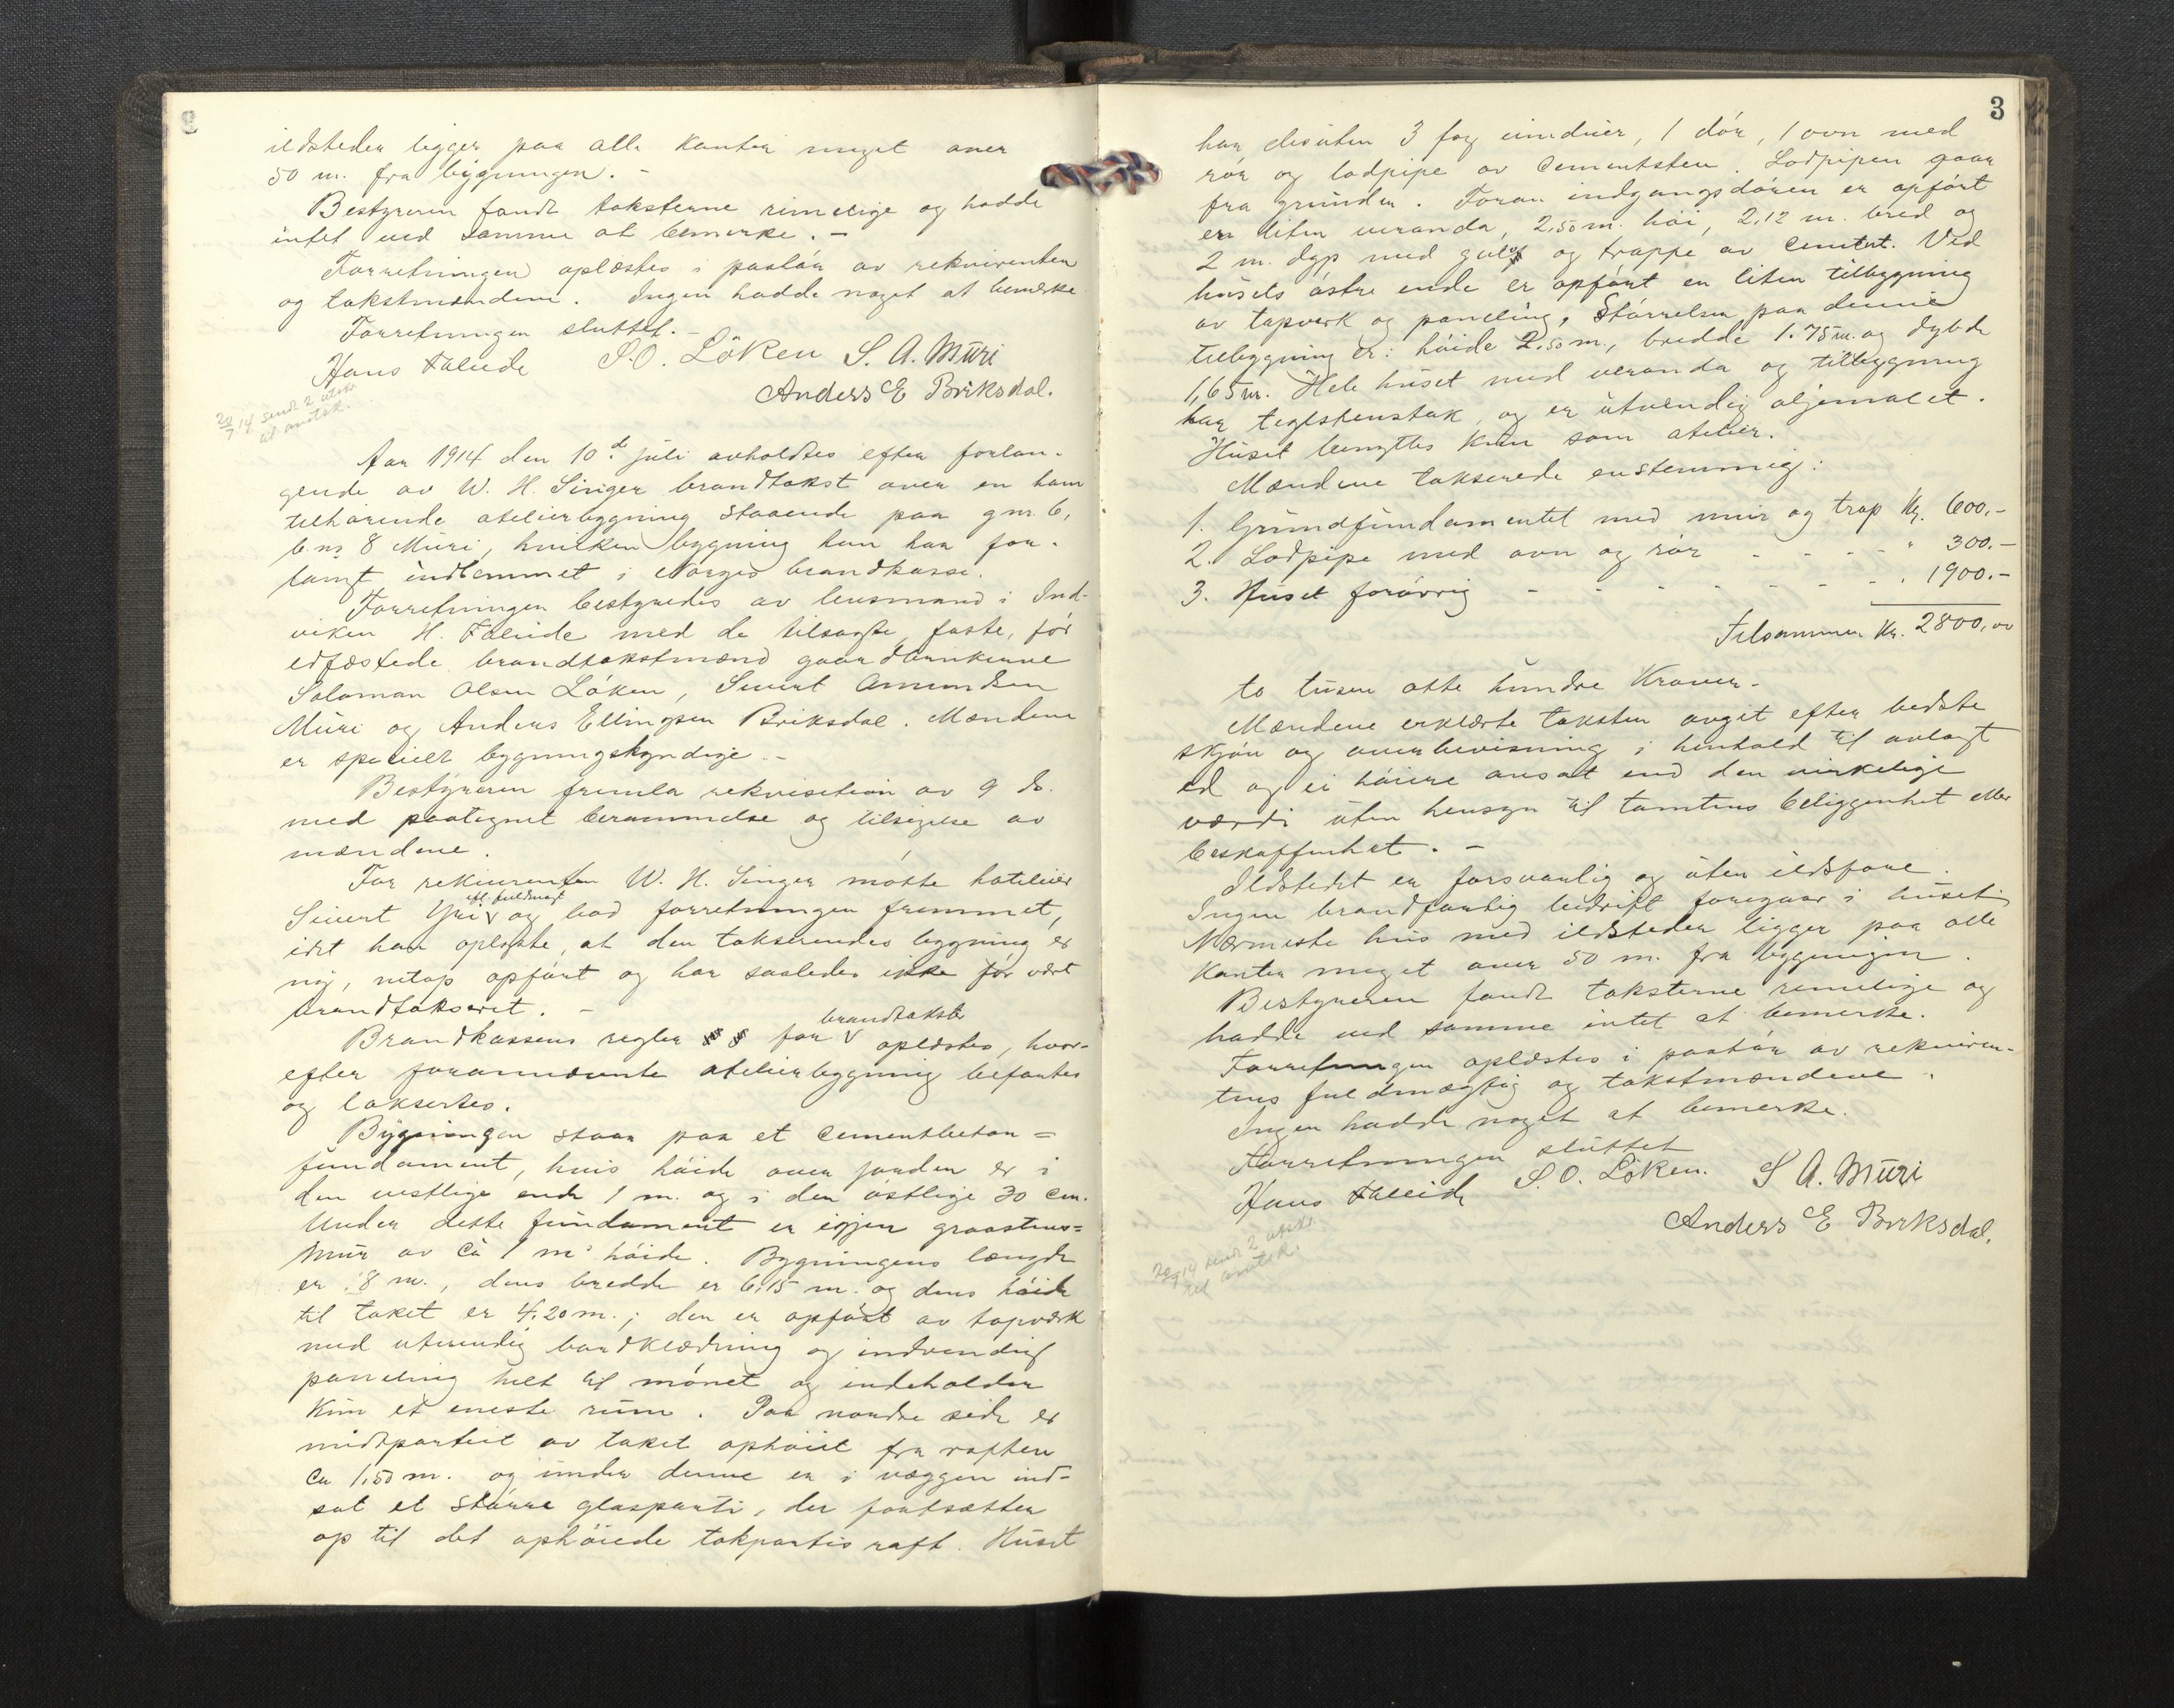 ildsteder ligger paa alle kanter meget over
50 m. fra bygningen. -
Bestyreren fandt taksterne rimelige og hadde
intet ved samme at bemerke. -
Forretningen oplæstes i paahör av rekvirenten
og takstmændene. Ingen hadde noget at bemerke.
Forretningen sluttet. -
Hans Faleide S. O. Löken S. A. Muri
Anders E Briksdal.
20/7 14 sendt 2 utskr.
til amtsk.
Aar 1914 den 10de juli avholdtes efter forlan-
gende av W. H. Singer brandtakst over en ham
tilhörende atelierbygning staaende paa gnr. 6,
b.nr 8 Muri, hvilken bygning han har for-
langt indlemmet i Norges brandkasse.
Forretningen bestyredes av lensmand i Ind-
viken H. Faleide med de tilsagte, faste, för
edfæstede brandtakstmænd gaardbrukerne
Salomon Olsen Löken, Sivert Amundsen
Muri og Anders Ellingsen Briksdal. Mændene
er specielt bygningskyndige. -
Bestyreren fremla rekvisition av 9 ds.
med paategnet berammelse og tilsigelse av
mændene.
For rekvirenten W. H. Singer mötte hotelier
Sivert Yri efl. fuldmagt og bad forretningen fremmet,
idet han oplyste, at den takserendes bygning er
ny, netop opfört og har saaledes ikke för vært
brandtakseret. -
Brandkassens regler §§ for brandtakster oplæstes, hvor-
efter forannævnte atelierbygning befartes
og taksertes.
Bygningen staar paa et cementbeton=
fundament, hvis höide over jorden er i
den vestlige ende 1 m. og i den östlige 30 cm.
Under dette fundament er igjen graastens=
mur av ca 1 m's höide. Bygningens længde
er 8 m., dens bredde er 6,15 m. og dens höide
til taket er 4,20 m.; den er opfört av tapverk
med utvendig bordklædning og indvendig
paneling helt til mönet og indeholder
kun et eneste rum. Paa nordre side er
midtpartiet av taket ophöiet fra raften
ca 1,50 m. og under denne er i væggen ind-
sat et större glasparti, der fortsætter
op til det ophöiede takpartis raft. Huset
3
har desuten 3 fag vinduer, 1 dör, 1 ovn med
rör og lodpipe av cementsten. Lodpipen gaar
fra grunden. Foran indgangsdören er opfört
en liten veranda, 2,50 m. höi, 2,12 m. bred og
2 m. dyp med gulv og trappe av cement. Ved
husets östre ende er opfört en liten tilbygning
av tapverk og paneling. Störrelsen paa denne
tilbygning er: höide 2,50 m., bredde 1.75 m. og dybde
1,65 m. Hele huset med veranda og tilbygning
har teglstenstak og er utvendig oljemalet.
Huset benyttes kun som atelier.
Mændene takserede enstemmig:
1. Grundfundamentet med mur og trap Kr. 600,-
2. Lodpipe med ovn og rör - - - - " 300.-
3. Huset forövrig - - - - - - - " 1900.-
Tilsammen Kr. 2800,00
to tusen otte hundre Kroner.
Mændene erklærte taksten avgit efter bedste
skjön og overbevisning i henhold til avlagt
ed og ei höiere ansat end den virkelige
værdi uten hensyn til tomtens beliggenhet eller
beskaffenhet. -
Ildstedet er forsvarlig og uten ildsfare.
Ingen brandfarlig bedrift foregaar i huset.
Nærmeste hus med ildsteder ligger paa alle
kanter meget over 50 m. fra bygningen.
Bestyreren fandt taksterne rimelige og
hadde ved samme intet at bemerke.
Forretningen oplæstes i paahör av rekviren-
tens fuldmægtig og takstmændene.
Ingen hadde noget at bemerke.
Forretningen sluttet
Hans Faleide S. O. Löken. S A. Muri
Anders E Briksdal.
20/7 14 sendt 2 utskr.
til amtsk.